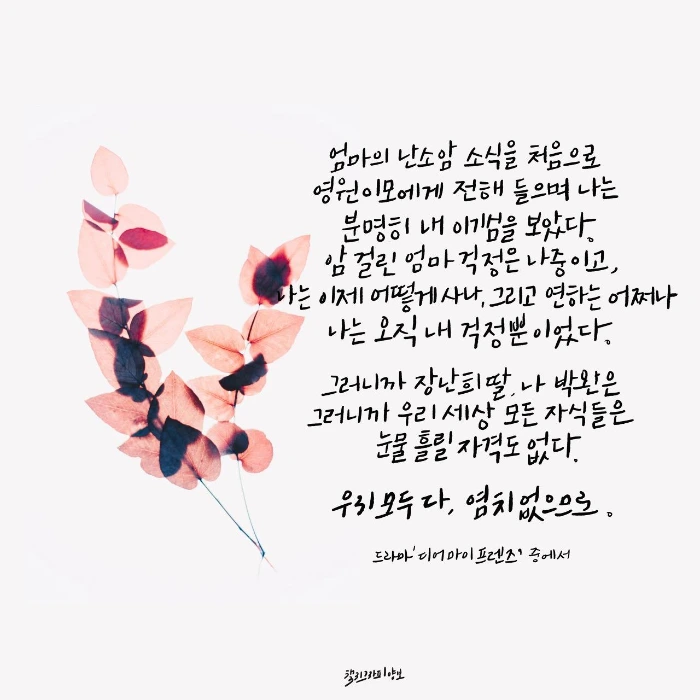 엄마의 난소암 소식을 처음으로
영원이모에게 전해 들으며 나는
분명히 내 이기심을 보았다.
암 걸린 엄마 걱정은 나중이고,
나는 이제 어떻게 사나, 그리고 연하는 어쩌나
나는 오직 내 걱정뿐이었다.
그러니까 장난희 딸, 나 박완은
그러니까 우리 세상 모든 자식들은
눈물 흘릴 자격도 없다.
우리 모두 다, 염치없으므로.
드라마 '디어 마이 프렌즈' 중에서
캘리그라피양보